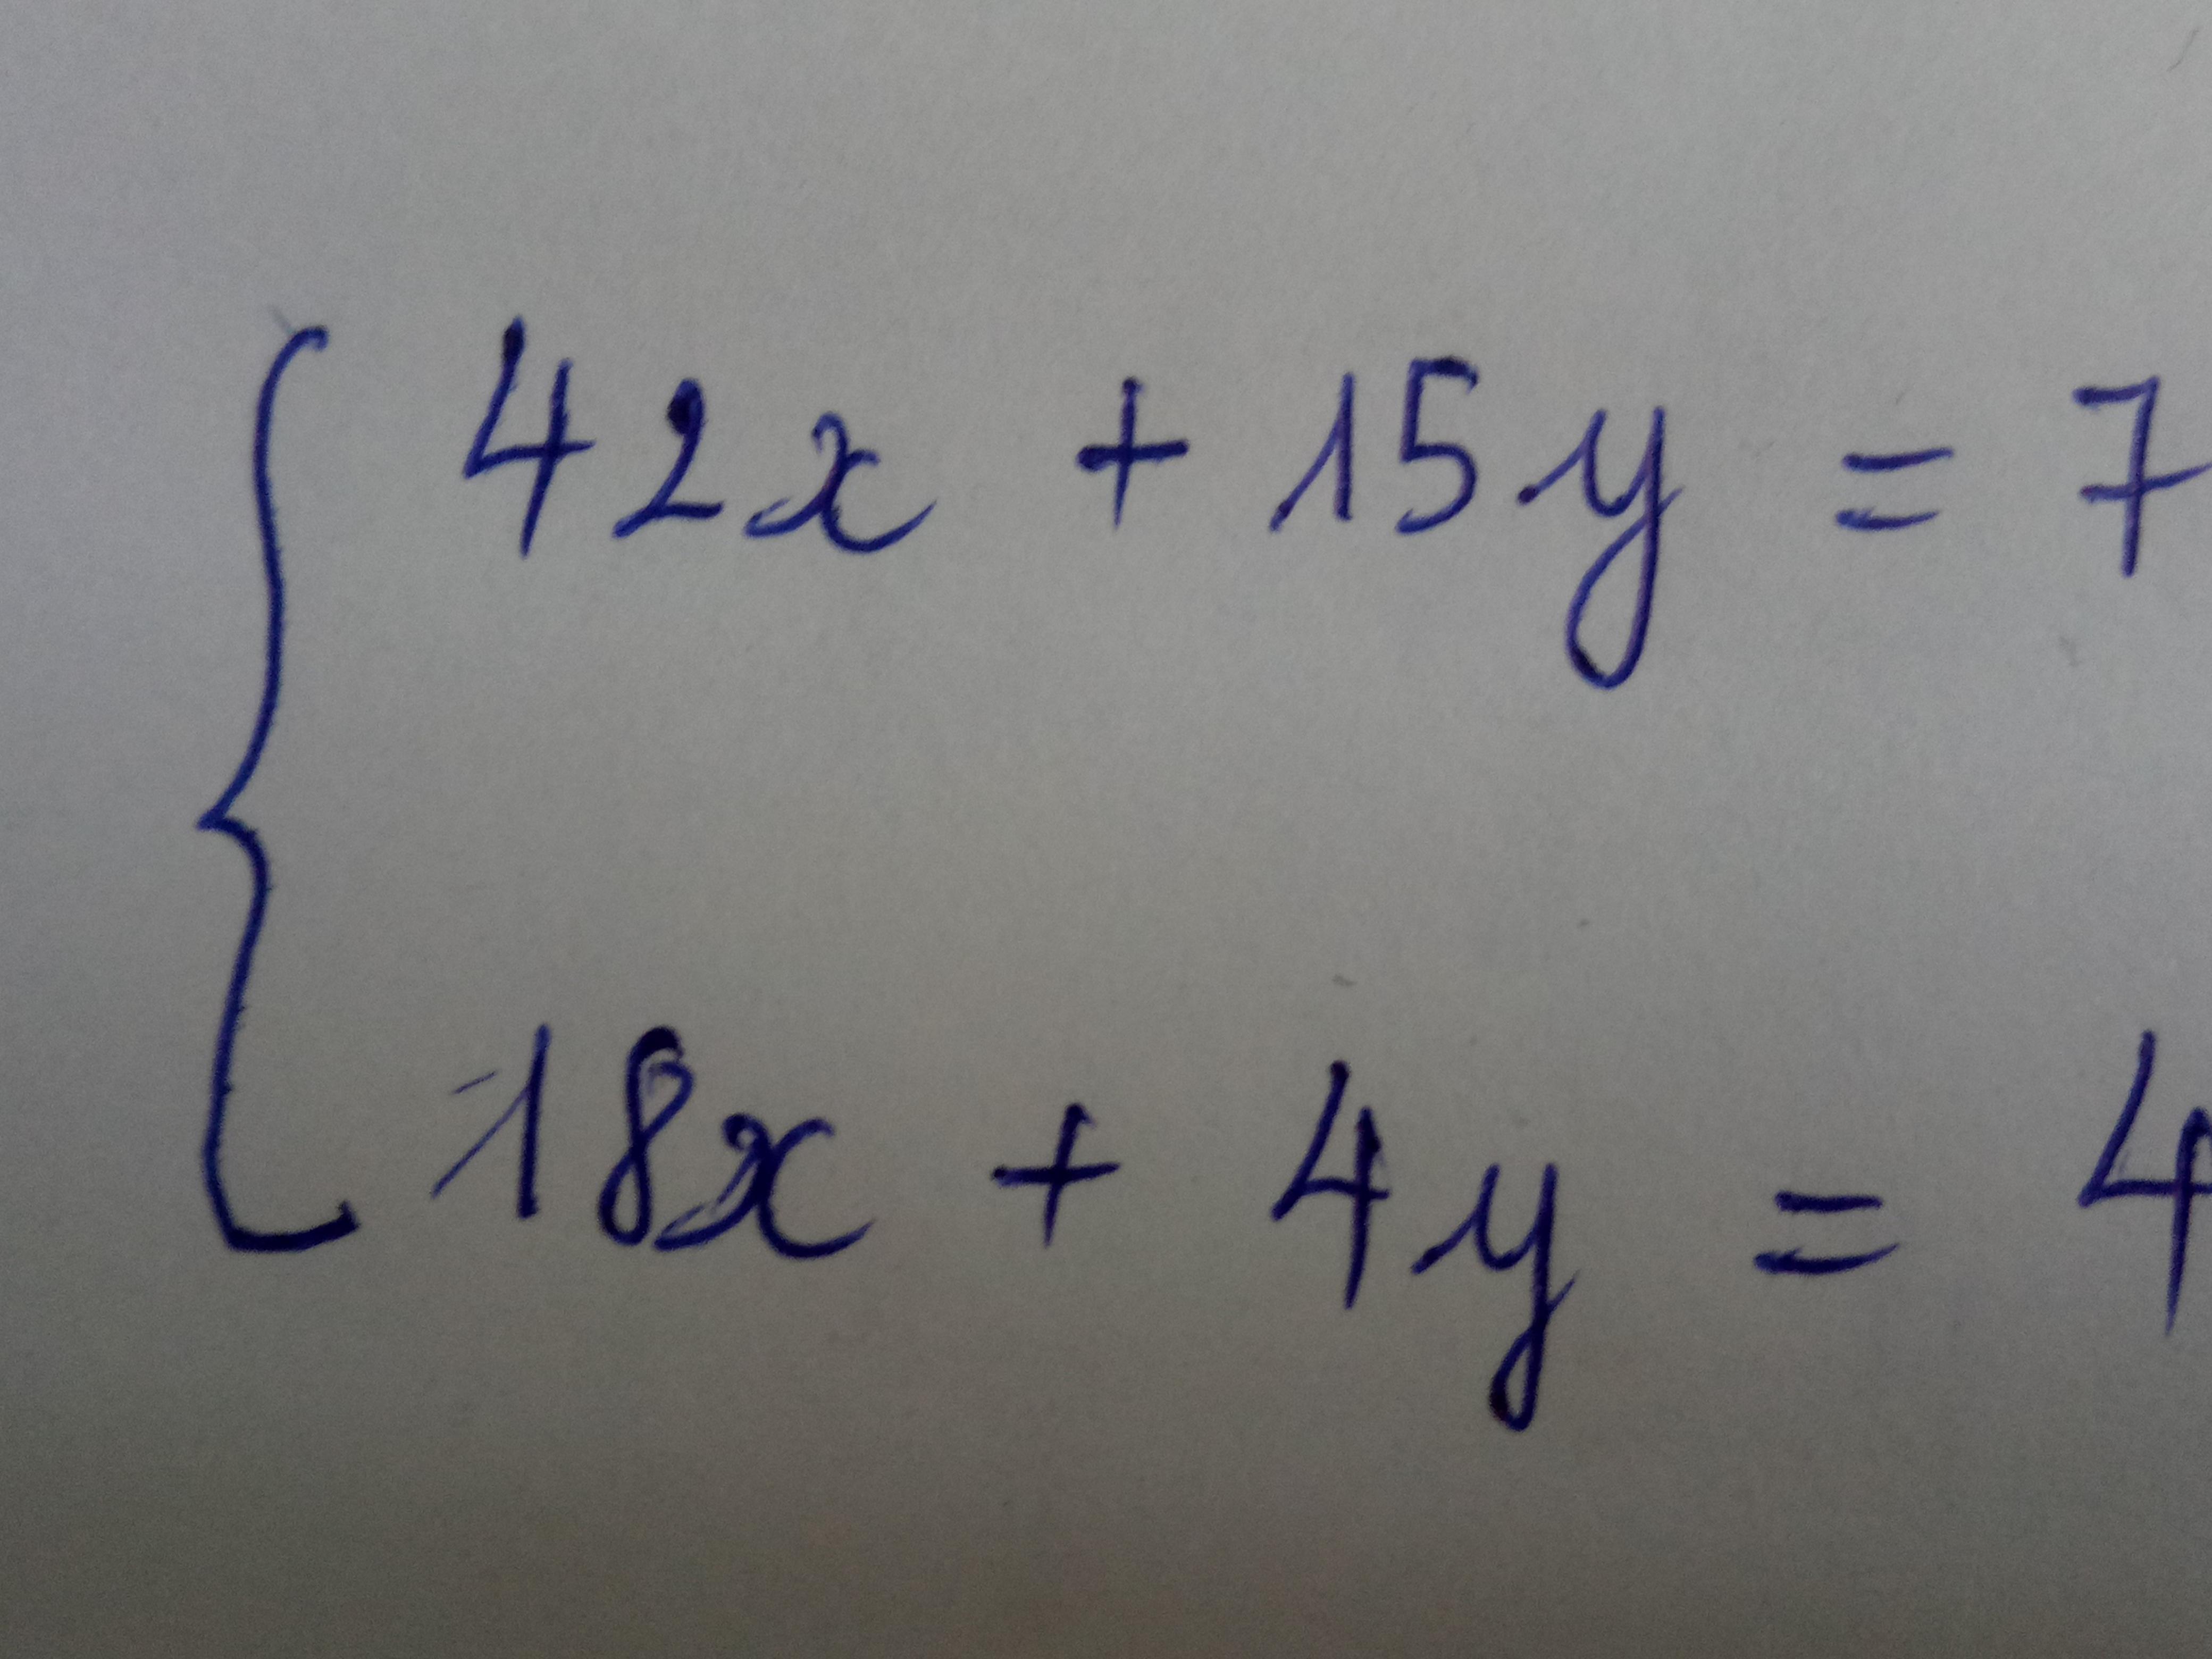 42x + 15y = 7
18x + 4y = 4